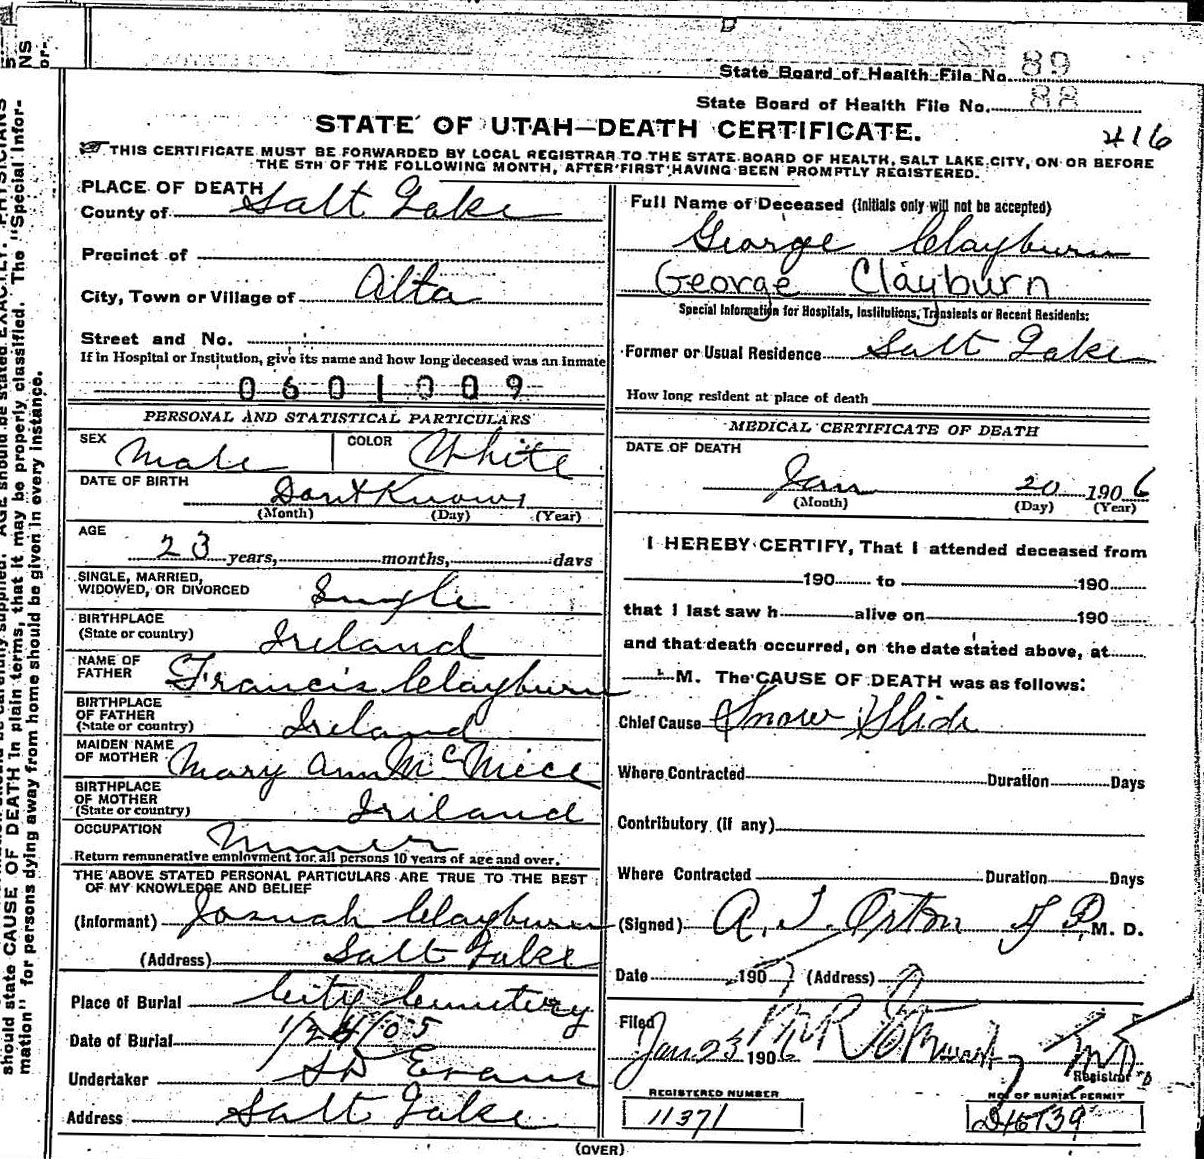 State Board of Health File No. 89
State Board of Health File No. 88
STATE OF UTAH—DEATH CERTIFICATE.
416
THIS CERTIFICATE MUST BE FORWARDED BY LOCAL REGISTRAR TO THE STATE BOARD OF HEALTH, SALT LAKE CITY, ON OR BEFORE
THE 5TH OF THE FOLLOWING MONTH, AFTER FIRST HAVING BEEN PROMPTLY REGISTERED.
PLACE OF DEATH
County of Salt Lake
Precinct of
City, Town or Village of Alta
Street and No.
If in Hospital or Institution, give its name and how long deceased was an inmate
0601009
PERSONAL AND STATISTICAL PARTICULARS
SEX Male
COLOR White
DATE OF BIRTH Dont Know
(Month) (Day) (Year)
AGE
23 years, months, days
SINGLE, MARRIED,
WIDOWED, OR DIVORCED Single
BIRTHPLACE
(State or country) Ireland
NAME OF
FATHER Francis Clayburn
BIRTHPLACE
OF FATHER
(State or country) Ireland
MAIDEN NAME
OF MOTHER Mary Ann McNiece
BIRTHPLACE
OF MOTHER
(State or country) Iriland
OCCUPATION Miner
Return remunerative employment for all persons 10 years of age and over.
THE ABOVE STATED PERSONAL PARTICULARS ARE TRUE TO THE BEST
OF MY KNOWLEDGE AND BELIEF
(Informant) Josuah Clayburn
(Address) Salt Lake
Place of Burial City Cemetery
Date of Burial 1/24/05
Undertaker S D Evans
Address Salt Lake
Full Name of Deceased (Initials only will not be accepted)
George Clayburn
George Clayburn
Special Information for Hospitals, Institutions, Transients or Recent Residents:
Former or Usual Residence Salt Lake
How long resident at place of death
MEDICAL CERTIFICATE OF DEATH
DATE OF DEATH
Jan 20 1906
(Month) (Day) (Year)
I HEREBY CERTIFY, That I attended deceased from
190 to 190
that I last saw h alive on 190
and that death occurred, on the date stated above, at
M. The CAUSE OF DEATH was as follows:
Chief Cause Snow Slide
Where Contracted Duration Days
Contributory (if any)
Where Contracted Duration Days
(Signed) A. T. Orton J P. M. D.
Date 190 (Address)
Filed
Jan 23 1906
Registrar
REGISTERED NUMBER
11371
NO. OF BURIAL PERMIT
(OVER)
should state CAUSE OF DEATH in plain terms, that it may be properly classified. The "Special Infor-
mation" for persons dying away from home should be given in every instance.